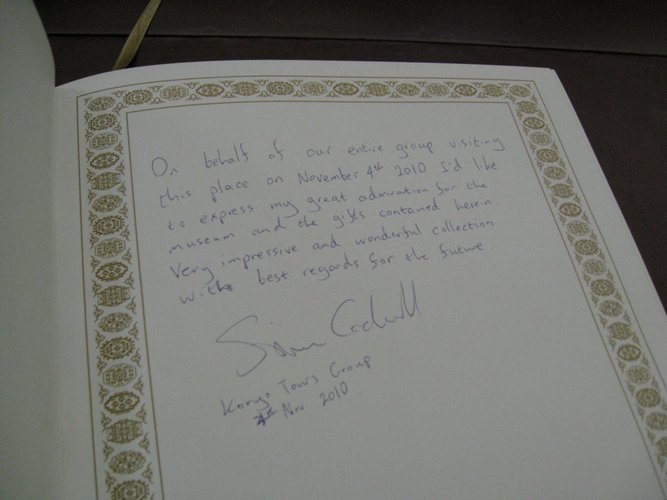 On behalf of our entire group visiting
this place on November 4th 2010 I'd like
to express my great admiration for the
museum and the gifts contained herein
Very impressive and wonderful collection
with best regards for the future
Simon Cockerell
Koryo Tours Group
4th Nov 2010